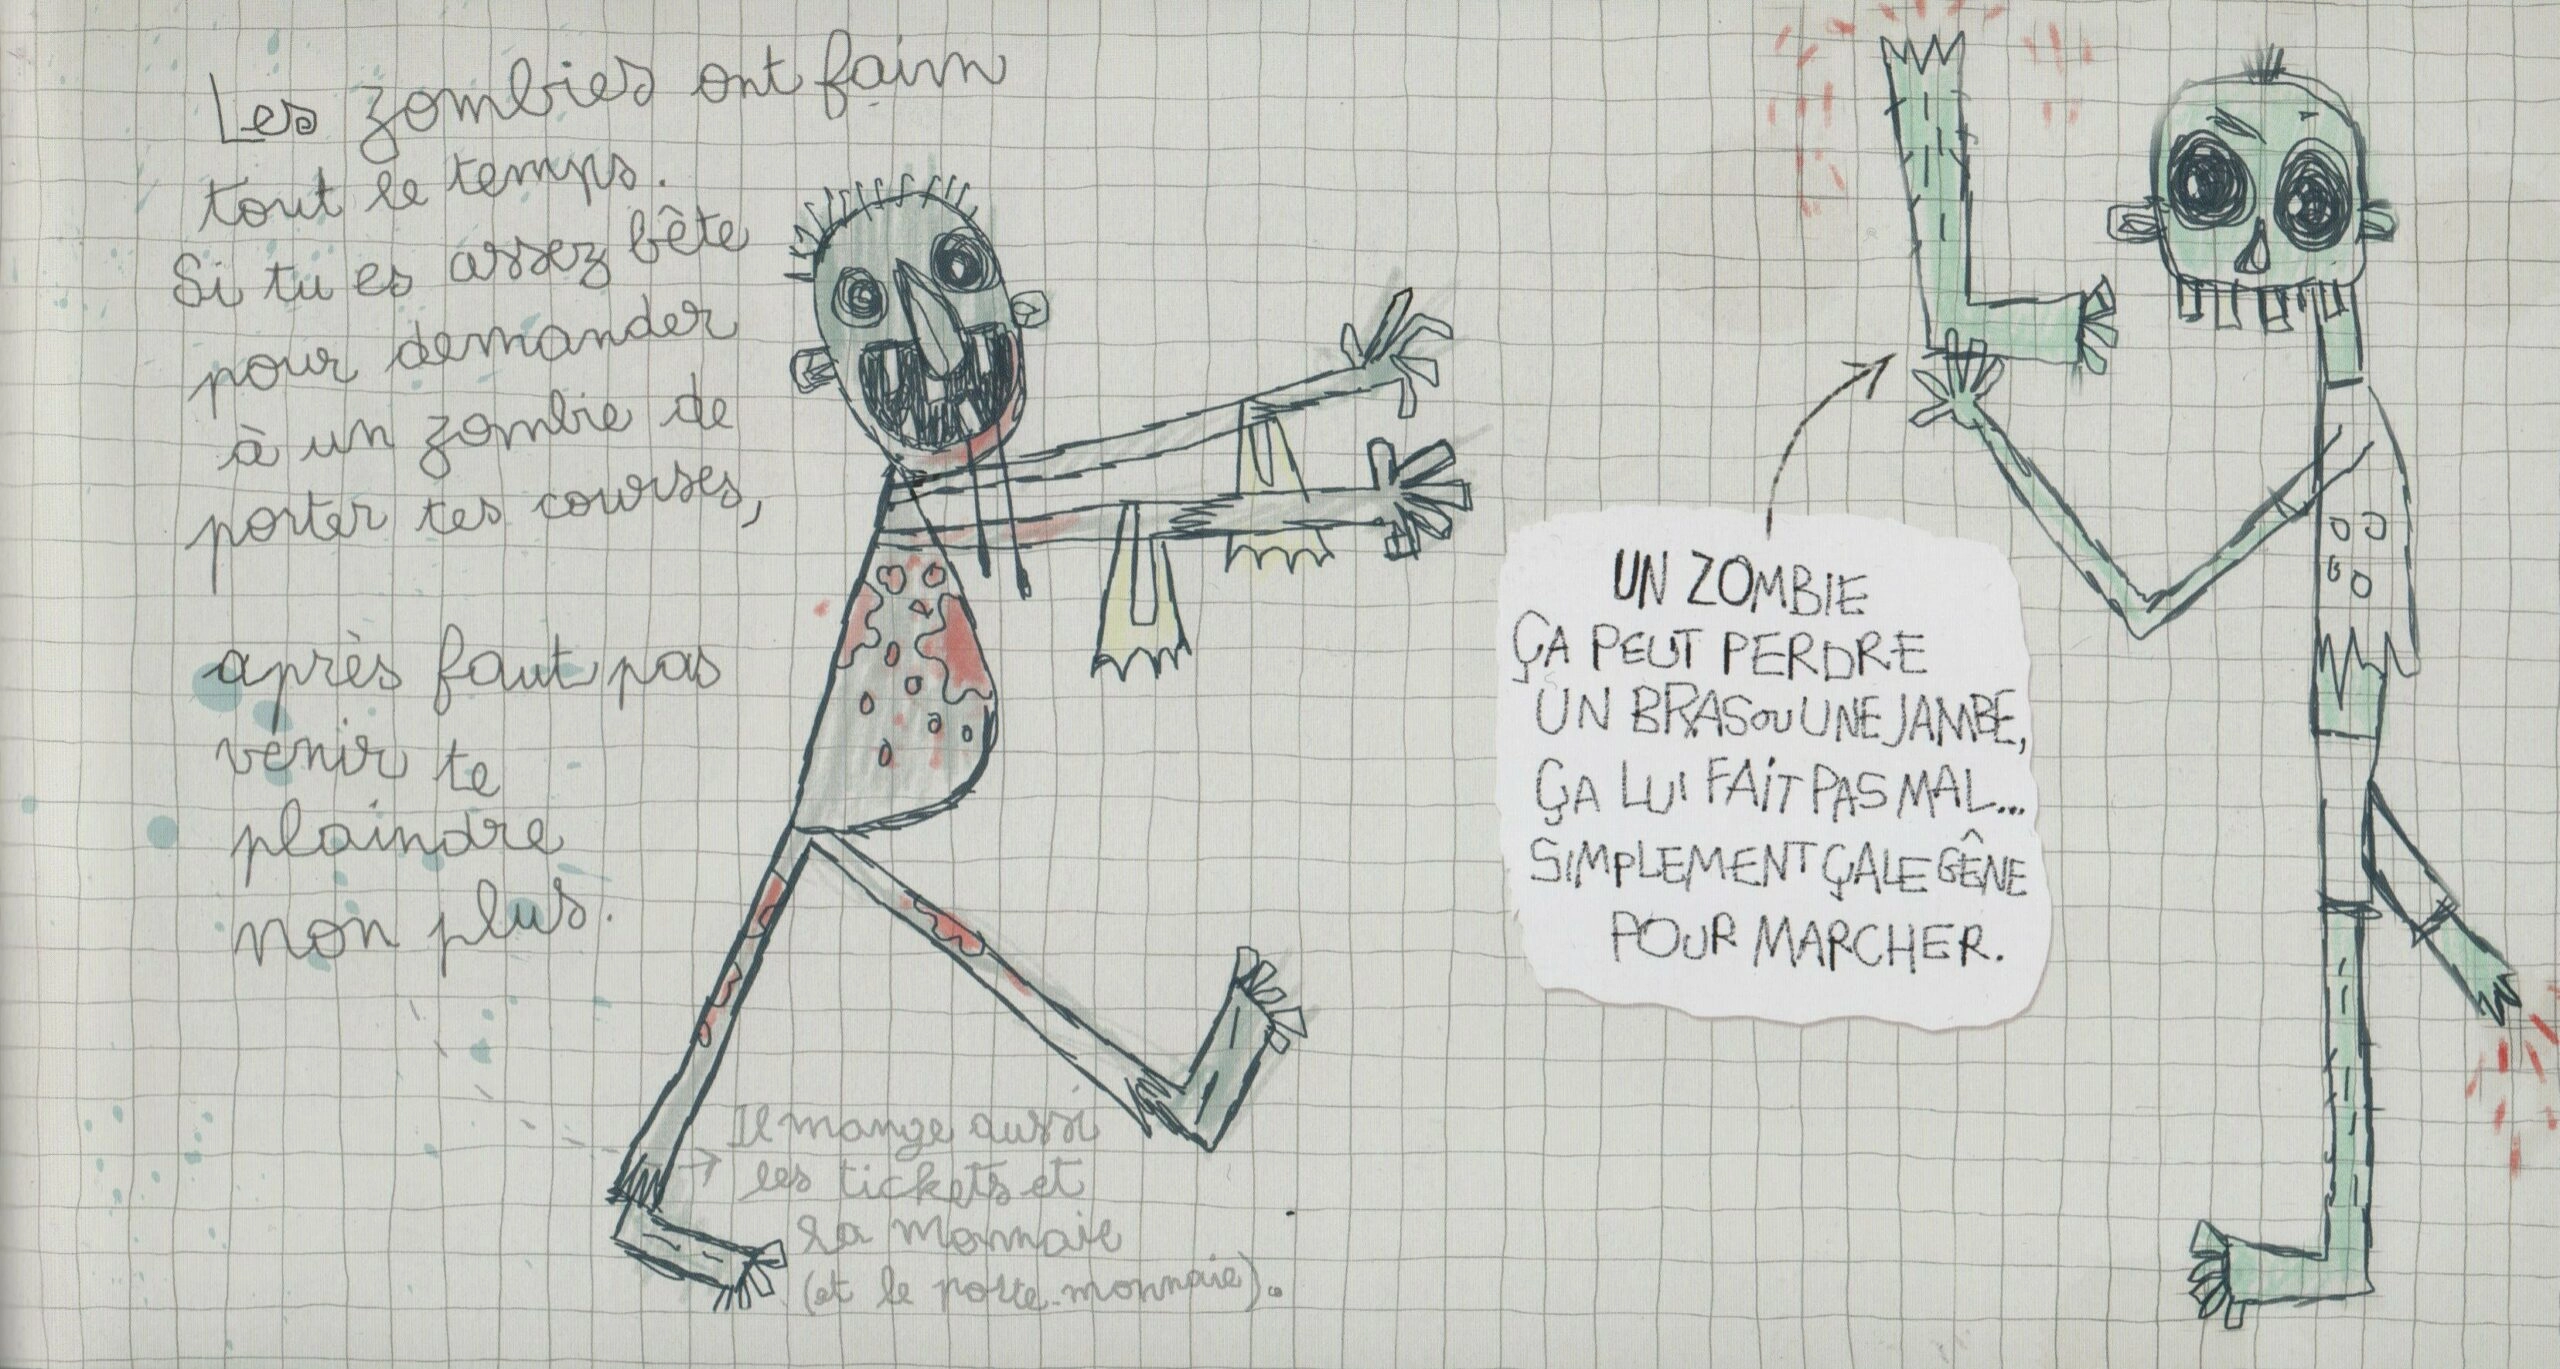 Les zombies ont faim
tout le temps.
Si tu es assez bête
pour demander
à un zombie de
porter tes courses,
après faut pas
venir te
plaindre
non plus.
Il mange aussi
les tickets et
la monnaie
(et le porte-monnaie).
UN ZOMBIE
ÇA PEUT PERDRE
UN BRAS OU UNE JAMBE,
ÇA LUI FAIT PAS MAL...
SIMPLEMENT ÇA LE GÊNE
POUR MARCHER.